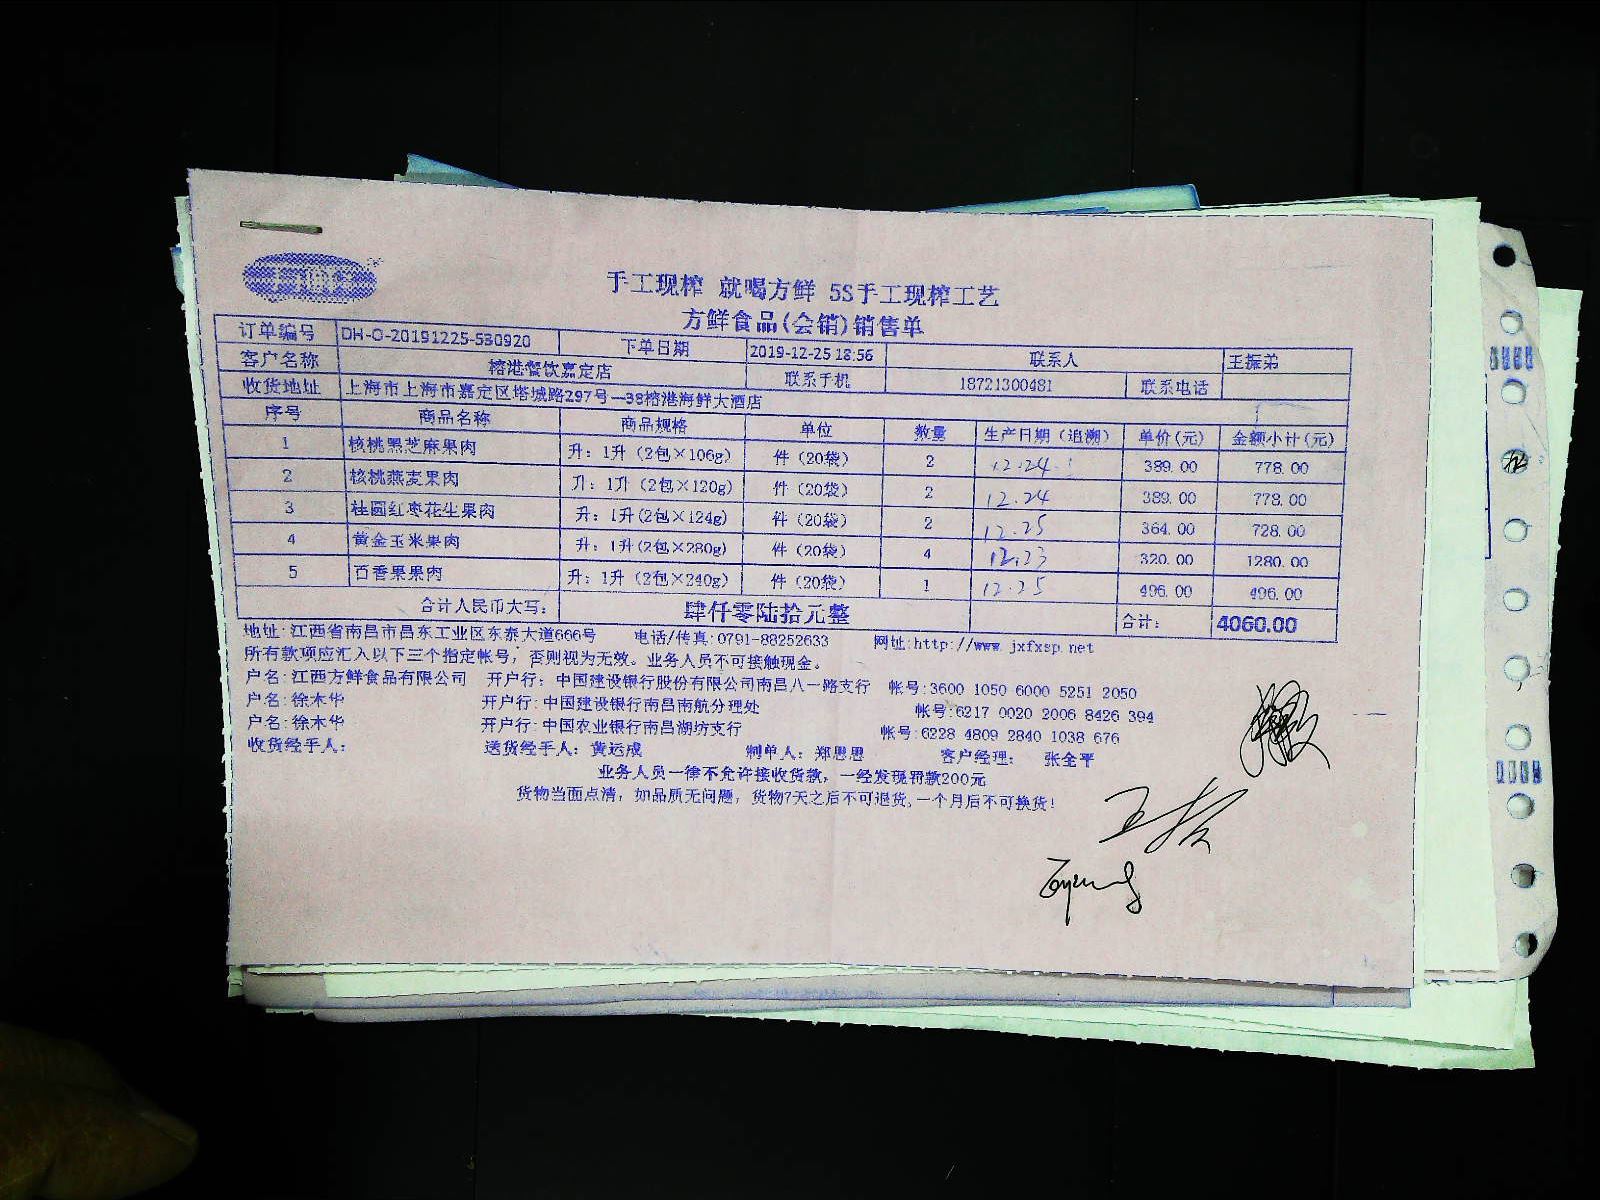 手工现榨 就喝方鲜 5S手工现榨工艺
方鲜食品(会销)销售单
订单编号 DH-O-20191225-530920 下单日期 2019-12-25 18:56 联系人 王振弟
客户名称 榕港餐饮嘉定店 联系手机 18721300481 联系电话
收货地址 上海市上海市嘉定区塔城路297号-38榕港海鲜大酒店
序号 商品名称 商品规格 单位 数量 生产日期(追溯) 单价(元) 金额小计(元)
1 核桃黑芝麻果肉 升：1升（2包×106g） 件（20袋） 2 12.24 389.00 778.00
2 核桃燕麦果肉 升：1升（2包×120g） 件（20袋） 2 12.24 389.00 778.00
3 桂圆红枣花生果肉 升：1升(2包×124g) 件（20袋） 2 12.25 364.00 728.00
4 黄金玉米果肉 升：1升(2包×280g) 件（20袋） 4 12.23 320.00 1280.00
5 百香果果肉 升：1升（2包×240g） 件（20袋） 1 12.25 496.00 496.00
合计人民币大写： 肆仟零陆拾元整 合计： 4060.00
地址:江西省南昌市昌东工业区东泰大道666号 电话/传真:0791-88252633 网址:http://www.jxfxsp.net
所有款项应汇入以下三个指定帐号，否则视为无效。业务人员不可接触现金。
户名:江西方鲜食品有限公司 开户行：中国建设银行股份有限公司南昌八一路支行 帐号:3600 1050 6000 5251 2050
户名:徐木华 开户行:中国建设银行南昌南航分理处 帐号:6217 0020 2006 8426 394
户名:徐木华 开户行:中国农业银行南昌湖坊支行 帐号:6228 4809 2840 1038 676
收货经手人： 送货经手人：黄运成 制单人：郑恩恩 客户经理： 张全平
业务人员一律不允许接收货款，一经发现罚款200元
货物当面点清，如品质无问题，货物7天之后不可退货,一个月后不可换货!